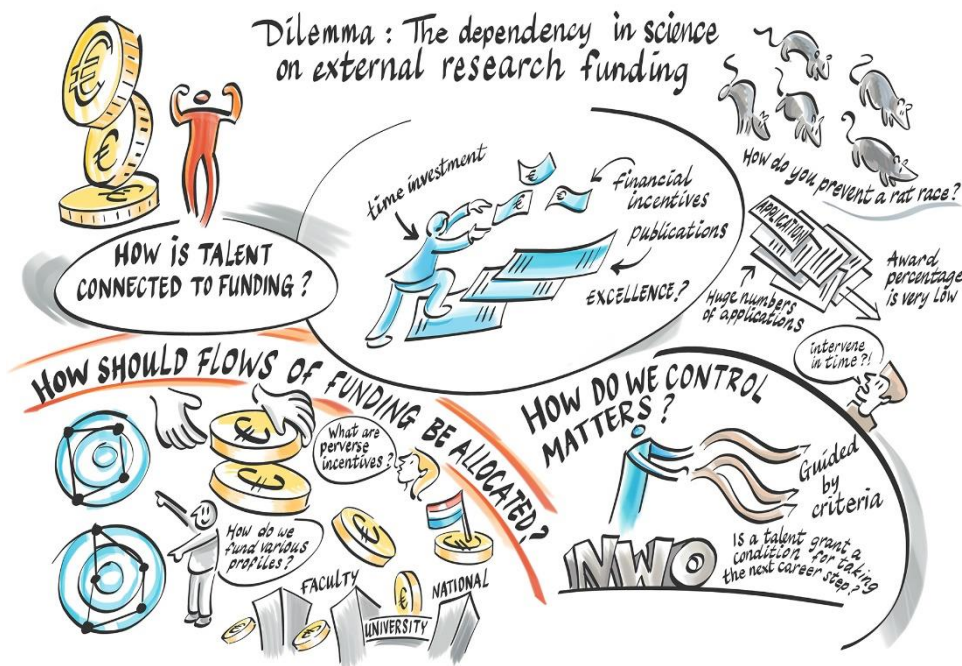 Dilemma : The dependency in science
on external research funding
€
€
€
HOW IS TALENT
CONNECTED TO FUNDING ?
time investment
€
€
€
financial
incentives
publications
EXCELLENCE?
How do you prevent a rat race?
APPLICATION
Huge numbers
of applications
Award
percentage
is very low
HOW SHOULD FLOWS OF FUNDING BE ALLOCATED?
€
€
What are
perverse
incentives?
How do we
fund various
profiles?
€
€
€
€
€
FACULTY
UNIVERSITY
NATIONAL
intervene
in time?!
HOW DO WE CONTROL
MATTERS?
Guided
by
criteria
NWO
IS a talent grant a
condition for taking
the next career step?